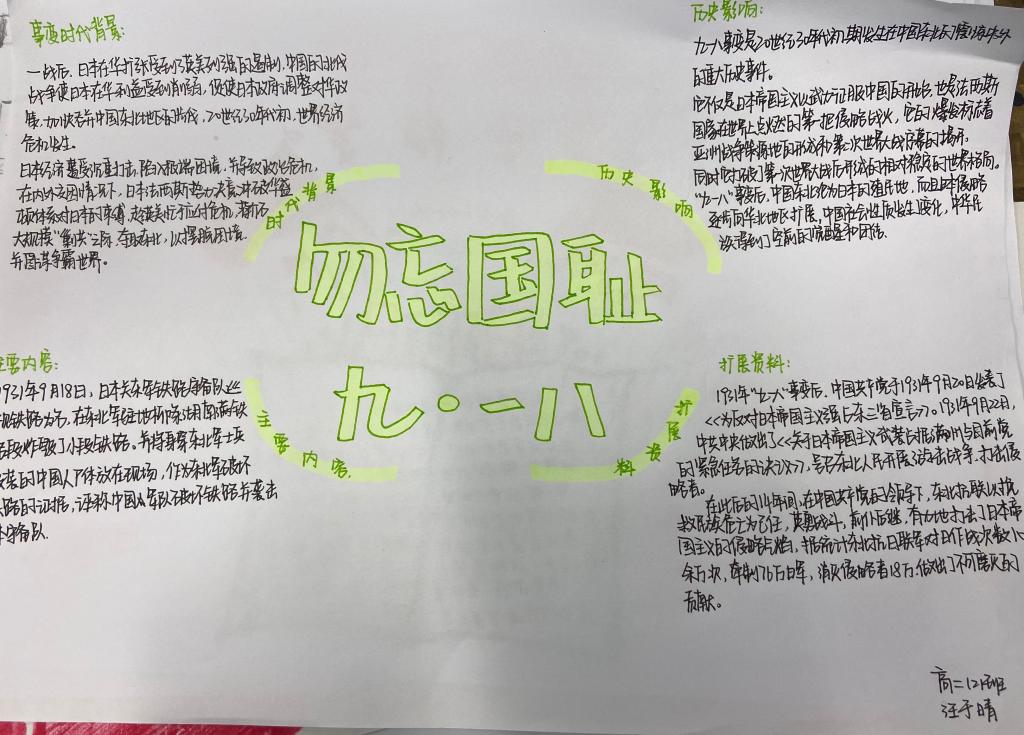 事变时代背景:
一战后,日本在华扩张受到了英美列强的遏制,中国的北伐
战争使日本在华利益受到削弱,促使日本政府调整对华政
策,加快吞并中国东北地区的步伐,20世纪30年代初,世界经济
危机发生。
日本经济遭受沉重打击,陷入极端困境,并导致政治危机,
在内外交困情况下,日本法西斯势力决意冲破华盛
顿体系对日本的束缚,趁英美忙于应付危机,蒋介石
大规模“剿共”之际,夺取东北,以摆脱困境,
并图谋争霸世界。
历史影响:
九一八事变是20世纪30年代初期发生在中国东北的震惊中外
的重大历史事件。
它不仅是日本帝国主义以武力征服中国的开始,也是法西斯
国家在世界上点燃的第一把侵略战火,它的爆发标志着
亚洲战争策源地的形成和第二次世界大战序幕的揭开,
同时打破了第一次世界大战后形成的相对稳定的世界格局。
“九一八”事变后,中国东北沦为日本的殖民地,而且日本侵略
逐步向华北地区扩展,中国社会性质发生了变化,中华民
族得到了空前的觉醒和团结。
时代背景
历史影响
勿忘国耻
九·一八
主要内容
扩展资料
主要内容:
1931年9月18日,日本关东军铁路守备队巡
铁路为名,在东北军驻地附近的南满铁
路段炸毁了小段铁路。并将身穿东北军士兵
服装的中国人尸体放在现场,作为东北军破坏
铁路的证据,诬称中国军队破坏铁路并袭击
守备队.
扩展资料:
1931年“九一八”事变后,中国共产党于1931年9月20日发表了
<<为反对日本帝国主义强占东三省宣言>>。1931年9月22日,
中共中央做出了<<关于日本帝国主义武装占据满州与目前党
的紧急任务的决议>>,号召东北人民开展游击战争,打击侵
略者。
在此后的14年间,在中国共产党的领导下,东北抗联以挽
救民族危亡为己任,英勇战斗,前仆后继,有力地打击了日本帝
国主义的侵略气焰,据统计东北抗日联军对日作战次数10
余万次,牵制76万日军,消灭侵略者18万.做出了不可磨灭的
贡献。
高二12班
汪于晴